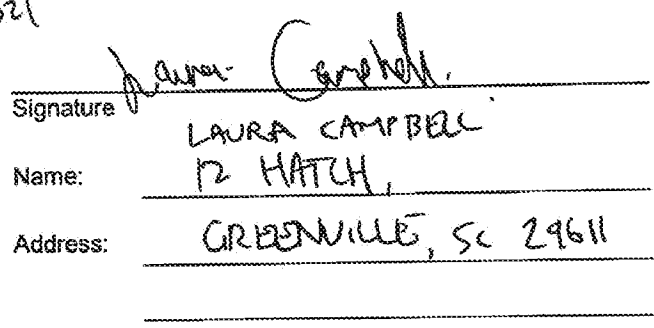 Laura Campbell.
Signature
LAURA CAMPBELL
Name: 12 HATCH,
Address: GREENVILLE, SC 29611